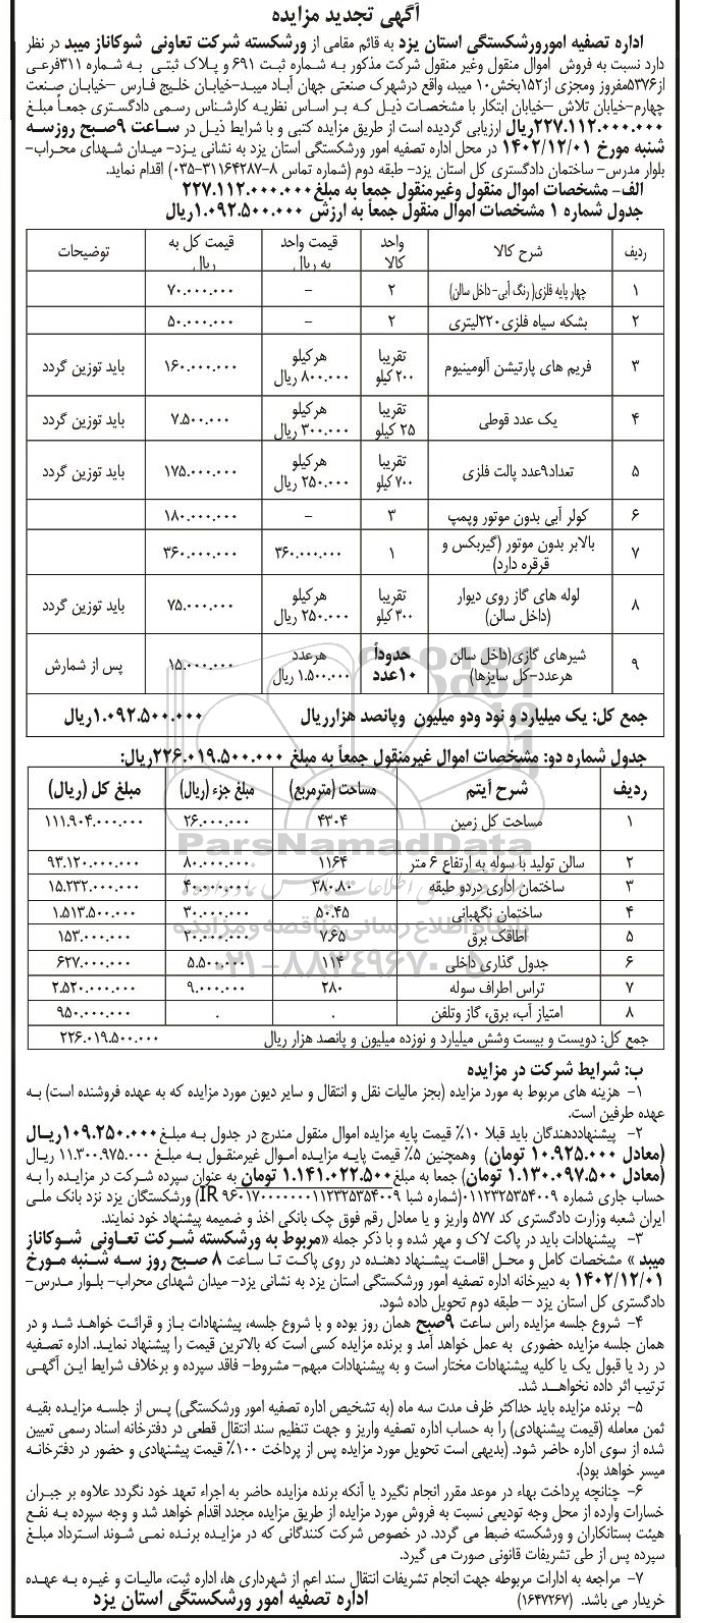 آگهی تجدید مزایده
اداره تصفیه امورورشکستگی استان یزد به قائم مقامی از ورشکسته شرکت تعاونی شوکاناز میبد در نظر
دارد نسبت به فروش اموال منقول وغیر منقول شرکت مذکور به شماره ثبت ۶۹۱ و پلاک ثبتی به شماره ۳۱۱فرعی
از۵۳۷۶مفروز ومجزی از۱۵۲بخش۱۰ میبد، واقع درشهرک صنعتی جهان آباد میبد-خیابان خلیج فارس -خیابان صنعت
چهارم-خیابان تلاش -خیابان ابتکار با مشخصات ذیل که بر اساس نظریه کارشناس رسمی دادگستری جمعاً مبلغ
۲۲۷.۱۱۲.۰۰۰.۰۰۰ریال ارزیابی گردیده است از طریق مزایده کتبی و با شرایط ذیل در ساعت ۹صبح روزسه
شنبه مورخ ۱۴۰۲/۱۲/۰۱ در محل اداره تصفیه امور ورشکستگی استان یزد به نشانی یزد- میدان شهدای محراب-
بلوار مدرس- ساختمان دادگستری کل استان یزد- طبقه دوم (شماره تماس ۸-۳۱۱۶۴۲۸۷-۰۳۵) اقدام نماید.
الف- مشخصات اموال منقول وغیرمنقول جمعا به مبلغ۲۲۷.۱۱۲.۰۰۰.۰۰۰
جدول شماره ۱ مشخصات اموال منقول جمعاً به ارزش ۱.۰۹۲.۵۰۰.۰۰۰ریال
ردیف شرح کالا واحد کالا قیمت واحد به ریال قیمت کل به ریال توضیحات
۱ چهارپایه فلزی( رنگ آبی-داخل سالن) ۲ - ۷۰.۰۰۰.۰۰۰
۲ بشکه سیاه فلزی۲۲۰لیتری ۲ - ۵۰.۰۰۰.۰۰۰
۳ فریم های پارتیشن آلومینیوم تقریبا ۲۰۰ کیلو هرکیلو ۸۰۰.۰۰۰ ریال ۱۶۰.۰۰۰.۰۰۰ باید توزین گردد
۴ یک عدد قوطی تقریبا ۲۵ کیلو هرکیلو ۳۰۰.۰۰۰ ریال ۷.۵۰۰.۰۰۰ باید توزین گردد
۵ تعداد۹عدد پالت فلزی تقریبا ۷۰۰ کیلو هرکیلو ۲۵۰.۰۰۰ ریال ۱۷۵.۰۰۰.۰۰۰ باید توزین گردد
۶ کولر آبی بدون موتور وپمپ ۳ - ۱۸۰.۰۰۰.۰۰۰
۷ بالابر بدون موتور (گیربکس و قرقره دارد) ۱ ۳۶۰.۰۰۰.۰۰۰ ۳۶۰.۰۰۰.۰۰۰
۸ لوله های گاز روی دیوار (داخل سالن) تقریبا ۳۰۰ کیلو هرکیلو ۲۵۰.۰۰۰ ریال ۷۵.۰۰۰.۰۰۰ باید توزین گردد
۹ شیرهای گازی(داخل سالن هرعدد-کل سایزها) حدوداً ۱۰عدد هرعدد ۱.۵۰۰.۰۰۰ ریال ۱۵.۰۰۰.۰۰۰ پس از شمارش
جمع کل: یک میلیارد و نود ودو میلیون وپانصد هزارریال ۱.۰۹۲.۵۰۰.۰۰۰ریال
جدول شماره دو: مشخصات اموال غیرمنقول جمعاً به مبلغ ۲۲۶.۰۱۹.۵۰۰.۰۰۰ریال:
ردیف شرح آیتم مساحت (مترمربع) مبلغ جزء (ریال) مبلغ کل (ریال)
۱ مساحت کل زمین ۴۳۰۴ ۲۶.۰۰۰.۰۰۰ ۱۱۱.۹۰۴.۰۰۰.۰۰۰
۲ سالن تولید با سوله به ارتفاع ۶ متر ۱۱۶۴ ۸۰.۰۰۰.۰۰۰ ۹۳.۱۲۰.۰۰۰.۰۰۰
۳ ساختمان اداری دردو طبقه ۳۸۰.۸۰ ۴۰.۰۰۰.۰۰۰ ۱۵.۲۳۲.۰۰۰.۰۰۰
۴ ساختمان نگهبانی ۵۰.۴۵ ۳۰.۰۰۰.۰۰۰ ۱.۵۱۳.۵۰۰.۰۰۰
۵ اطاقک برق ۷.۶۵ ۲۰.۰۰۰.۰۰۰ ۱۵۳.۰۰۰.۰۰۰
۶ جدول گذاری داخلی ۱۱۴ ۵.۵۰۰.۰۰۰ ۶۲۷.۰۰۰.۰۰۰
۷ تراس اطراف سوله ۲۸۰ ۹.۰۰۰.۰۰۰ ۲.۵۲۰.۰۰۰.۰۰۰
۸ امتیاز آب، برق، گاز وتلفن . . ۹۵۰.۰۰۰.۰۰۰
جمع کل: دویست و بیست وشش میلیارد و نوزده میلیون و پانصد هزار ریال ۲۲۶.۰۱۹.۵۰۰.۰۰۰
ParsNamadData
۰۲۱-۸۸۳۴۹۶۷۰-۵
ب: شرایط شرکت در مزایده
۱- هزینه های مربوط به مورد مزایده (بجز مالیات نقل و انتقال و سایر دیون مورد مزایده که به عهده فروشنده است) به
عهده طرفین است.
۲- پیشنهاددهندگان باید قبلا ۱۰٪ قیمت پایه مزایده اموال منقول مندرج در جدول به مبلغ۱۰۹.۲۵۰.۰۰۰ریال
(معادل ۱۰.۹۲۵.۰۰۰ تومان) وهمچنین ۵٪ قیمت پایه مزایده اموال غیرمنقول به مبلغ ۱۱.۳۰۰.۹۷۵.۰۰۰ ریال
(معادل ۱.۱۳۰.۰۹۷.۵۰۰ تومان) جمعا به مبلغ۱.۱۴۱.۰۲۲.۵۰۰ تومان به عنوان سپرده شرکت در مزایده را به
حساب جاری شماره ۰۱۱۲۳۲۵۳۵۴۰۰۹(شماره شبا IR ۹۶۰۱۷۰۰۰۰۰۰۰۱۱۲۳۲۵۳۵۴۰۰۹) ورشکستگان یزد نزد بانک ملی
ایران شعبه وزارت دادگستری کد ۵۷۷ واریز و یا معادل رقم فوق چک بانکی اخذ و ضمیمه پیشنهاد خود نمایند.
۳- پیشنهادات باید در پاکت لاک و مهر شده و با ذکر جمله «مربوط به ورشکسته شرکت تعاونی شوکاناز
میبد » مشخصات کامل و محل اقامت پیشنهاد دهنده در روی پاکت تا ساعت ۸ صبح روز سه شنبه مورخ
۱۴۰۲/۱۲/۰۱ به دبیرخانه اداره تصفیه امور ورشکستگی استان یزد به نشانی یزد- میدان شهدای محراب- بلوار مدرس-
دادگستری کل استان یزد – طبقه دوم تحویل داده شود.
۴- شروع جلسه مزایده راس ساعت ۹صبح همان روز بوده و با شروع جلسه، پیشنهادات باز و قرائت خواهد شد و در
همان جلسه مزایده حضوری به عمل خواهد آمد و برنده مزایده کسی است که بالاترین قیمت را پیشنهاد نماید. اداره تصفیه
در رد یا قبول یک یا کلیه پیشنهادات مختار است و به پیشنهادات مبهم- مشروط- فاقد سپرده و برخلاف شرایط این آگهی
ترتیب اثر داده نخواهد شد.
۵- برنده مزایده باید حداکثر ظرف مدت سه ماه (به تشخیص اداره تصفیه امور ورشکستگی) پس از جلسه مزایده بقیه
ثمن معامله (قیمت پیشنهادی) را به حساب اداره تصفیه واریز و جهت تنظیم سند انتقال قطعی در دفترخانه اسناد رسمی تعیین
شده از سوی اداره حاضر شود. (بدیهی است تحویل مورد مزایده پس از پرداخت ۱۰۰٪ قیمت پیشنهادی و حضور در دفترخانه
میسر خواهد بود).
۶- چنانچه پرداخت بهاء در موعد مقرر انجام نگیرد یا آنکه برنده مزایده حاضر به اجراء تعهد خود نگردد علاوه بر جبران
خسارات وارده از محل وجه تودیعی نسبت به فروش مورد مزایده از طریق مزایده مجدد اقدام خواهد شد و وجه سپرده به نفع
هیئت بستانکاران و ورشکسته ضبط می گردد. در خصوص شرکت کنندگانی که در مزایده برنده نمی شوند استرداد مبلغ
سپرده پس از طی تشریفات قانونی صورت می گیرد.
۷- مراجعه به ادارات مربوطه جهت انجام تشریفات انتقال سند اعم از شهرداری ها، اداره ثبت، مالیات و غیره به عهده
خریدار می باشد. (۱۶۴۷۲۶۷) اداره تصفیه امور ورشکستگی استان یزد